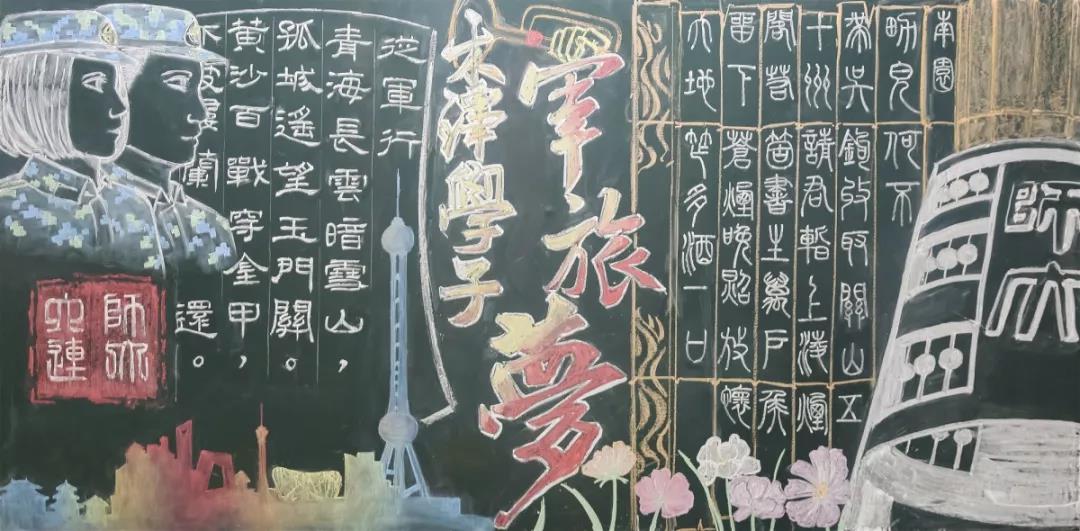 南園
男兒何不
帶吳鉤收取關山五
十州請君暫上凌煙
閣若箇書生萬戶侯
留下蒼煙晚照放懷
地多酒一口
師大
軍旅夢
木鐸學子
從軍行
青海長雲暗雪山，
孤城遙望玉門關。
黃沙百戰穿金甲，
不破樓蘭還。
師大
六連